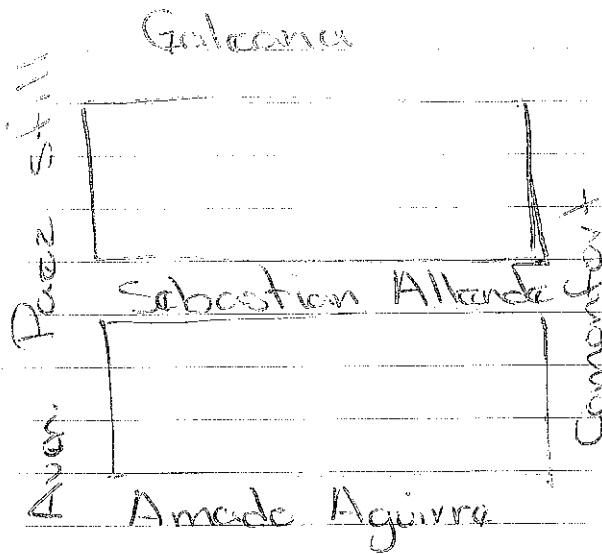 Galeana
Avon. Paez Still
Sebastian Allende
Comonfort
Amado Aguirre